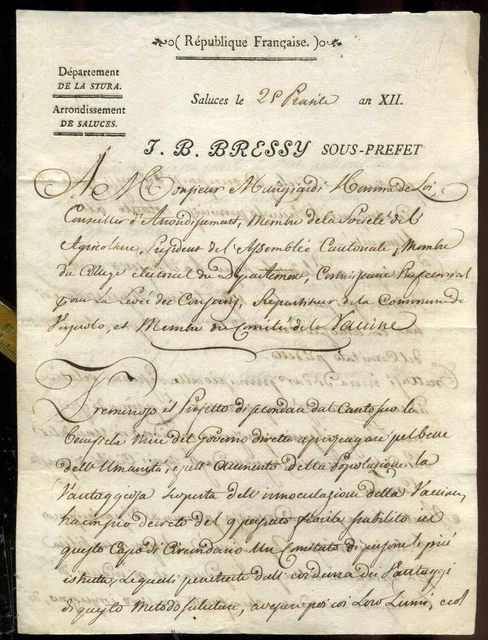 ( République Française. )
Département
DE LA STURA.
Arrondissement
DE SALUCES.
Saluces le 25 an XII.
J. B. BRESSY SOUS-PREFET
A Monsieur
Conseiller d'Arrondissement, Membre de la Societé de l'
Agriculture, President de l'Assemblée Cantonale, Membre
du College electoral du Departement, Commissaire
pour la Levée des Conscrits, Repartiteur de la Commune de
et Membre du Comité de la Vaccine
Premuroso il Prefetto di secondare dal Canto suo le
Benefiche mire del Governo dirette a procacciare pel bene
dell'Umanità, e pell'Aumento della Popolazione la
Vantaggiosa scoperta dell'innoculazione della Vaccina,
ha in suo decreto del 9 stabilito in
questo Capo di Circondario Un Comitato di persone le più
istrutte, le quali penetrate dall' dei Vantaggi
di questo Metodo salutare, avessero poi coi Loro Lumi, e col